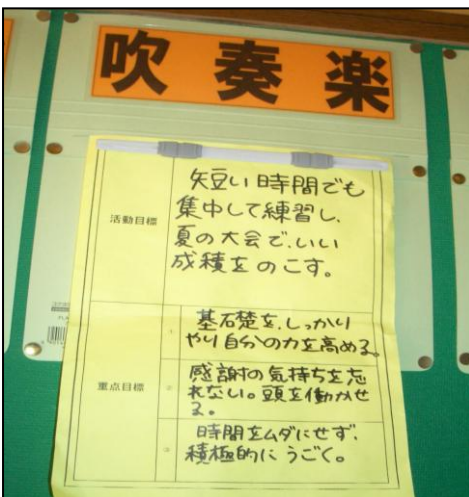 吹奏楽
活動目標
短い時間でも
集中して練習し、
夏の大会で、いい
成積をのこす。
重点目標
1
基石楚を、しっかり
やり自分の力を高める。
2
感謝の気持ちを忘
れない。頭を働かせ
る。
3
時間をムダにせず、
積極的にうごく。